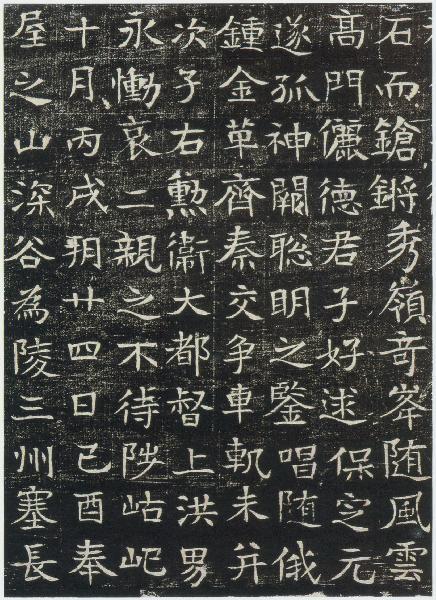 石而鎗鏘秀嶺奇峯随風雲
髙門儷德君子好逑保㝎元
遂孤神闕聡明之鑒唱随俄
鍾金革齊秦交争車軌未并
次子右勲衛大都督上洪男
永慟哀二親之不待陟岵屺
十月丙戌朔廿四日己酉奉
屋之山深谷為陵三州塞長